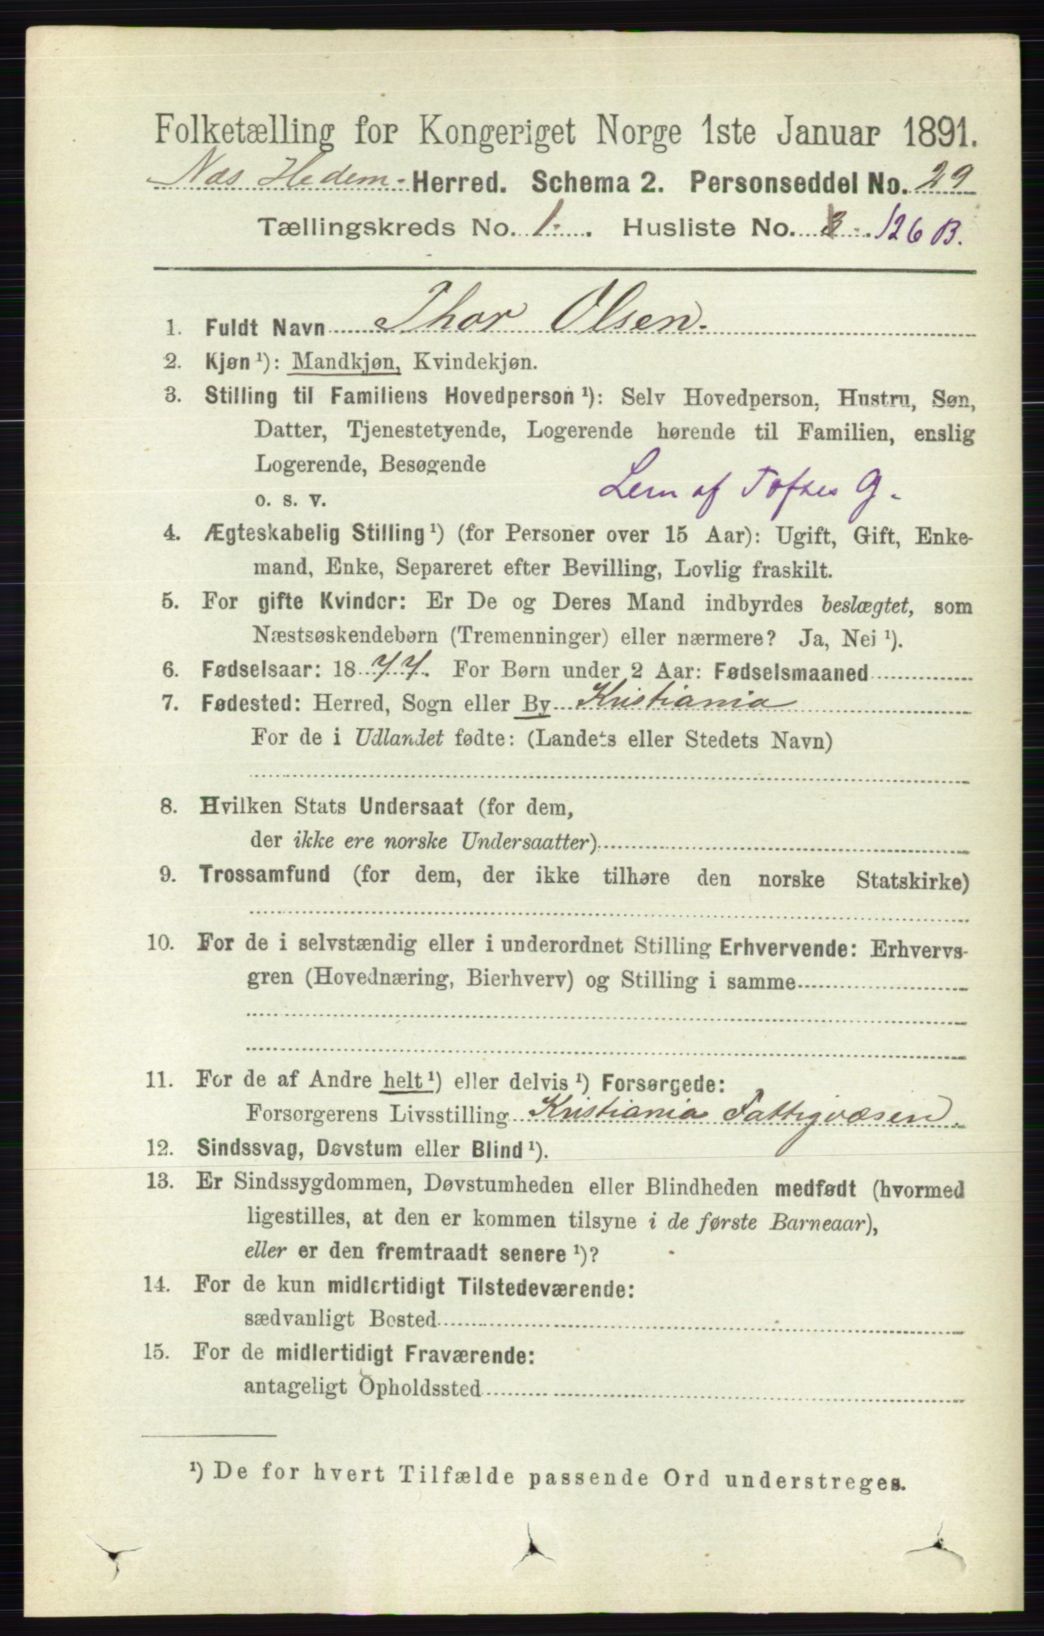 Folketælling for Kongeriget Norge 1ste Januar 1891.
Næs Hedem- Herred. Schema 2. Personseddel No. 29
Tællingskreds No. 1. Husliste No. 3 126 B.
1. Fuldt Navn Thor Olsen.
2. Kjøn ¹): Mandkjøn, Kvindekjøn.
3. Stilling til Familiens Hovedperson ¹): Selv Hovedperson, Hustru, Søn,
Datter, Tjenestetyende, Logerende hørende til Familien, enslig
Logerende, Besøgende
o. s. v. Lem af Toftes G.
4. Ægteskabelig Stilling ¹) (for Personer over 15 Aar): Ugift, Gift, Enke-
mand, Enke, Separeret efter Bevilling, Lovlig fraskilt.
5. For gifte Kvinder: Er De og Deres Mand indbyrdes beslægtet, som
Næstsøskendebørn (Tremenninger) eller nærmere? Ja, Nei ¹).
6. Fødselsaar: 18 77. For Børn under 2 Aar: Fødselsmaaned
7. Fødested: Herred, Sogn eller By Kristiania
For de i Udlandet fødte: (Landets eller Stedets Navn)
8. Hvilken Stats Undersaat (for dem,
der ikke ere norske Undersaatter)
9. Trossamfund (for dem, der ikke tilhøre den norske Statskirke)
10. For de i selvstændig eller i underordnet Stilling Erhvervende: Erhvervs-
gren (Hovednæring, Bierhverv) og Stilling i samme
11. For de af Andre helt ¹) eller delvis ¹) Forsørgede:
Forsørgerens Livsstilling Kristiania Fattigvæsen.
12. Sindssvag, Døvstum eller Blind ¹).
13. Er Sindssygdommen, Døvstumheden eller Blindheden medfødt (hvormed
ligestilles, at den er kommen tilsyne i de første Barneaar),
eller er den fremtraadt senere ¹)?
14. For de kun midlertidigt Tilstedeværende:
sædvanligt Bosted
15. For de midlertidigt Fraværende:
antageligt Opholdssted
¹) De for hvert Tilfælde passende Ord understreges.